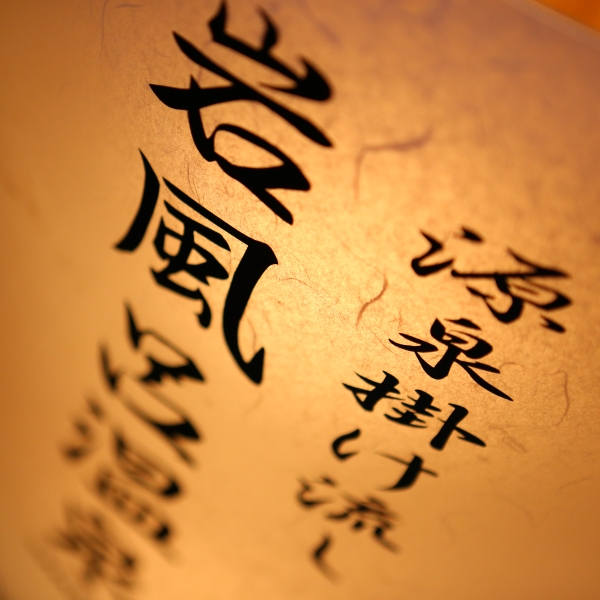 源泉掛け流し
岩風呂温泉